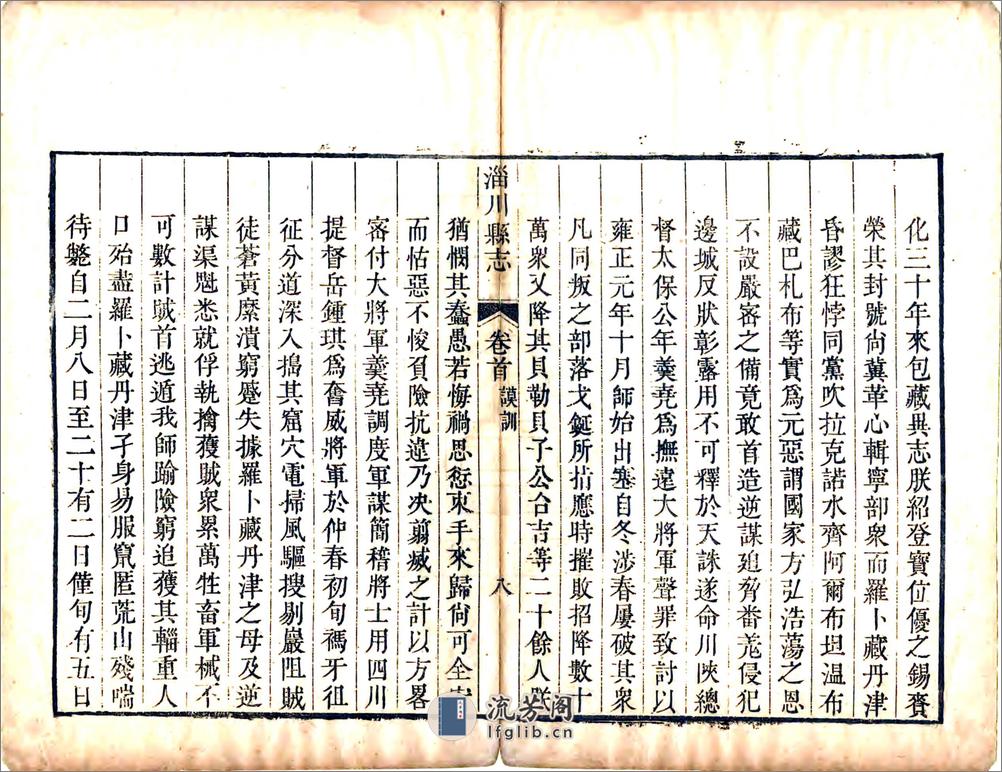 化三十年來包藏異志朕紹登寶位優之錫賚
榮其封號尙冀革心輯寧部衆而羅卜藏丹津
昏謬狂悖同黨吹拉克諾木齊阿爾布坦溫布
藏巴札布等實爲元惡謂國家方弘浩蕩之恩
不設嚴審之備竟敢首造逆謀廹脅番羗侵犯
邊城反狀彰露用不可釋於天誅遂命川陜總
督太保公年羹堯爲撫遠大將軍聲罪致討以
雍正元年十月師始出塞自冬涉春屢破其衆
凡同叛之部落戈鋋所指應時摧敗招降數十
萬衆又降其貝勒貝子公台吉等二十餘人朕
淄川縣志
卷首
謨訓
八
猶憫其蠢愚若悔禍思愆束手來歸尙可全宥
而怙惡不悛負險抗違乃决翦滅之計以方畧
審付大將軍羹堯調度軍謀簡稽將士用四川
提督岳鍾琪爲奮威將軍於仲春初旬禡牙徂
征分道深入搗其窟穴電掃風驅搜剔巖阻賊
徒蒼黃糜潰窮蹙失據羅卜藏丹津之母及逆
謀渠魁悉就俘執擒獲賊衆累萬牲畜軍械不
可數計賊首逃遁我師踰險窮追獲其輜重人
口殆盡羅卜藏丹津孑身易服竄匿荒山殘喘
待斃自二月八日至二十有二日僅旬有五日
流芳阁
lfglib.cn